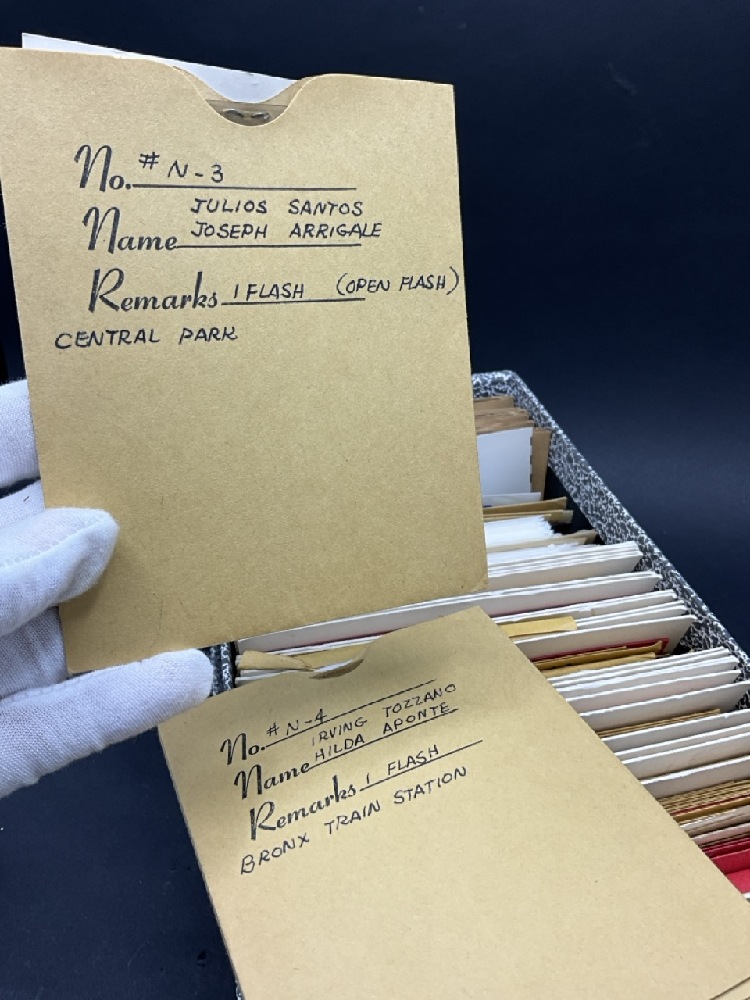 No. # N-3
JULIOS SANTOS
Name JOSEPH ARRIGALE
Remarks 1 FLASH (OPEN FLASH)
CENTRAL PARK
No. # N-4
IRVING TOZZANO
Name HILDA APONTE
Remarks 1 FLASH
BRONX TRAIN STATION